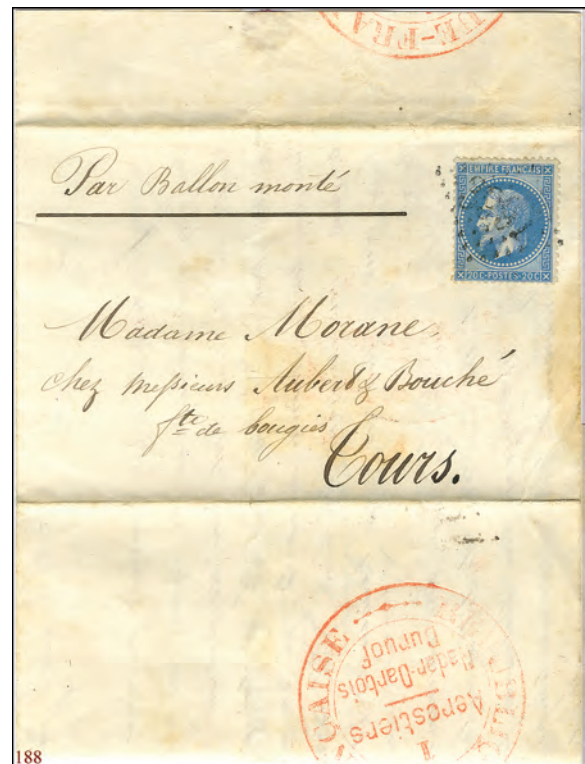 UE-FRA
Par Ballon monté
EMPIRE FRANÇAIS
20C-POSTE-20C
Madame Morane
chez Messieurs Aubert & Bouché
fte de bougies
Tours.
ÇAISE
Nadar-Dartois
Duruof
Aerostiers
188